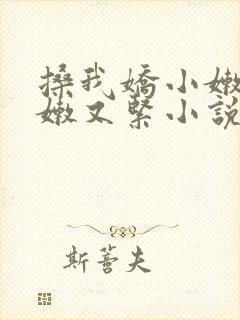 搡我嬌小嫩
嫩又緊小說
斯蓍夫